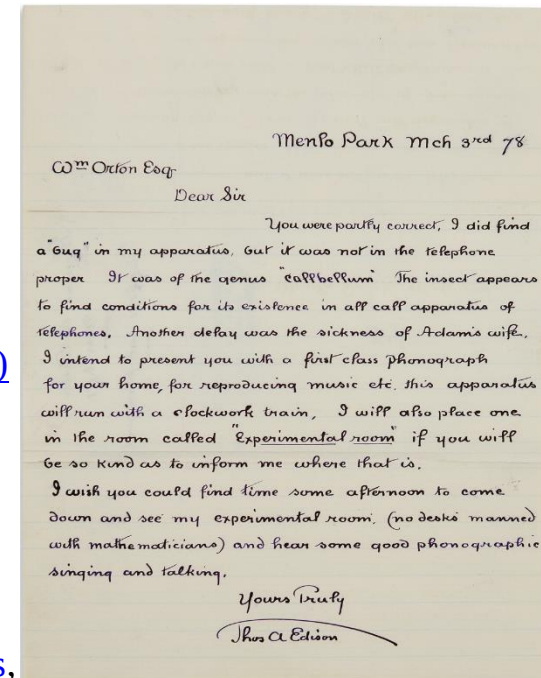 Menlo Park Mch 3rd 78
Wm Orton Esq
Dear Sir
You were partly correct, I did find
a "bug" in my apparatus, but it was not in the telephone
proper It was of the genus "callbellum" The insect appears
to find conditions for its existence in all call apparatus of
telephones. Another delay was the sickness of Adams wife.
I intend to present you with a first class phonograph
for your home, for reproducing music etc. this apparatus
will run with a clockwork train, I will also place one
in the room called "Experimental room" if you will
be so kind as to inform me where that is.
I wish you could find time some afternoon to come
down and see my experimental room, (no desks manned
with mathematicians) and hear some good phonographic
singing and talking.
Yours Truly
Thos A Edison
)
s,